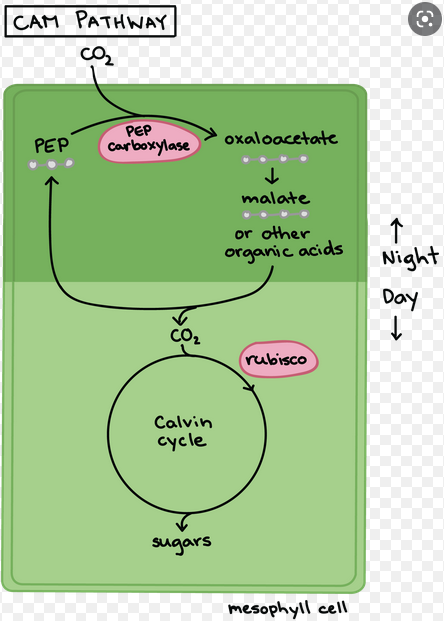 CAM PATHWAY
CO2
PEP
PEP
carboxylase
oxaloacetate
malate
or other
organic acids
Night
Day
CO2
rubisco
Calvin
cycle
sugars
mesophyll cell